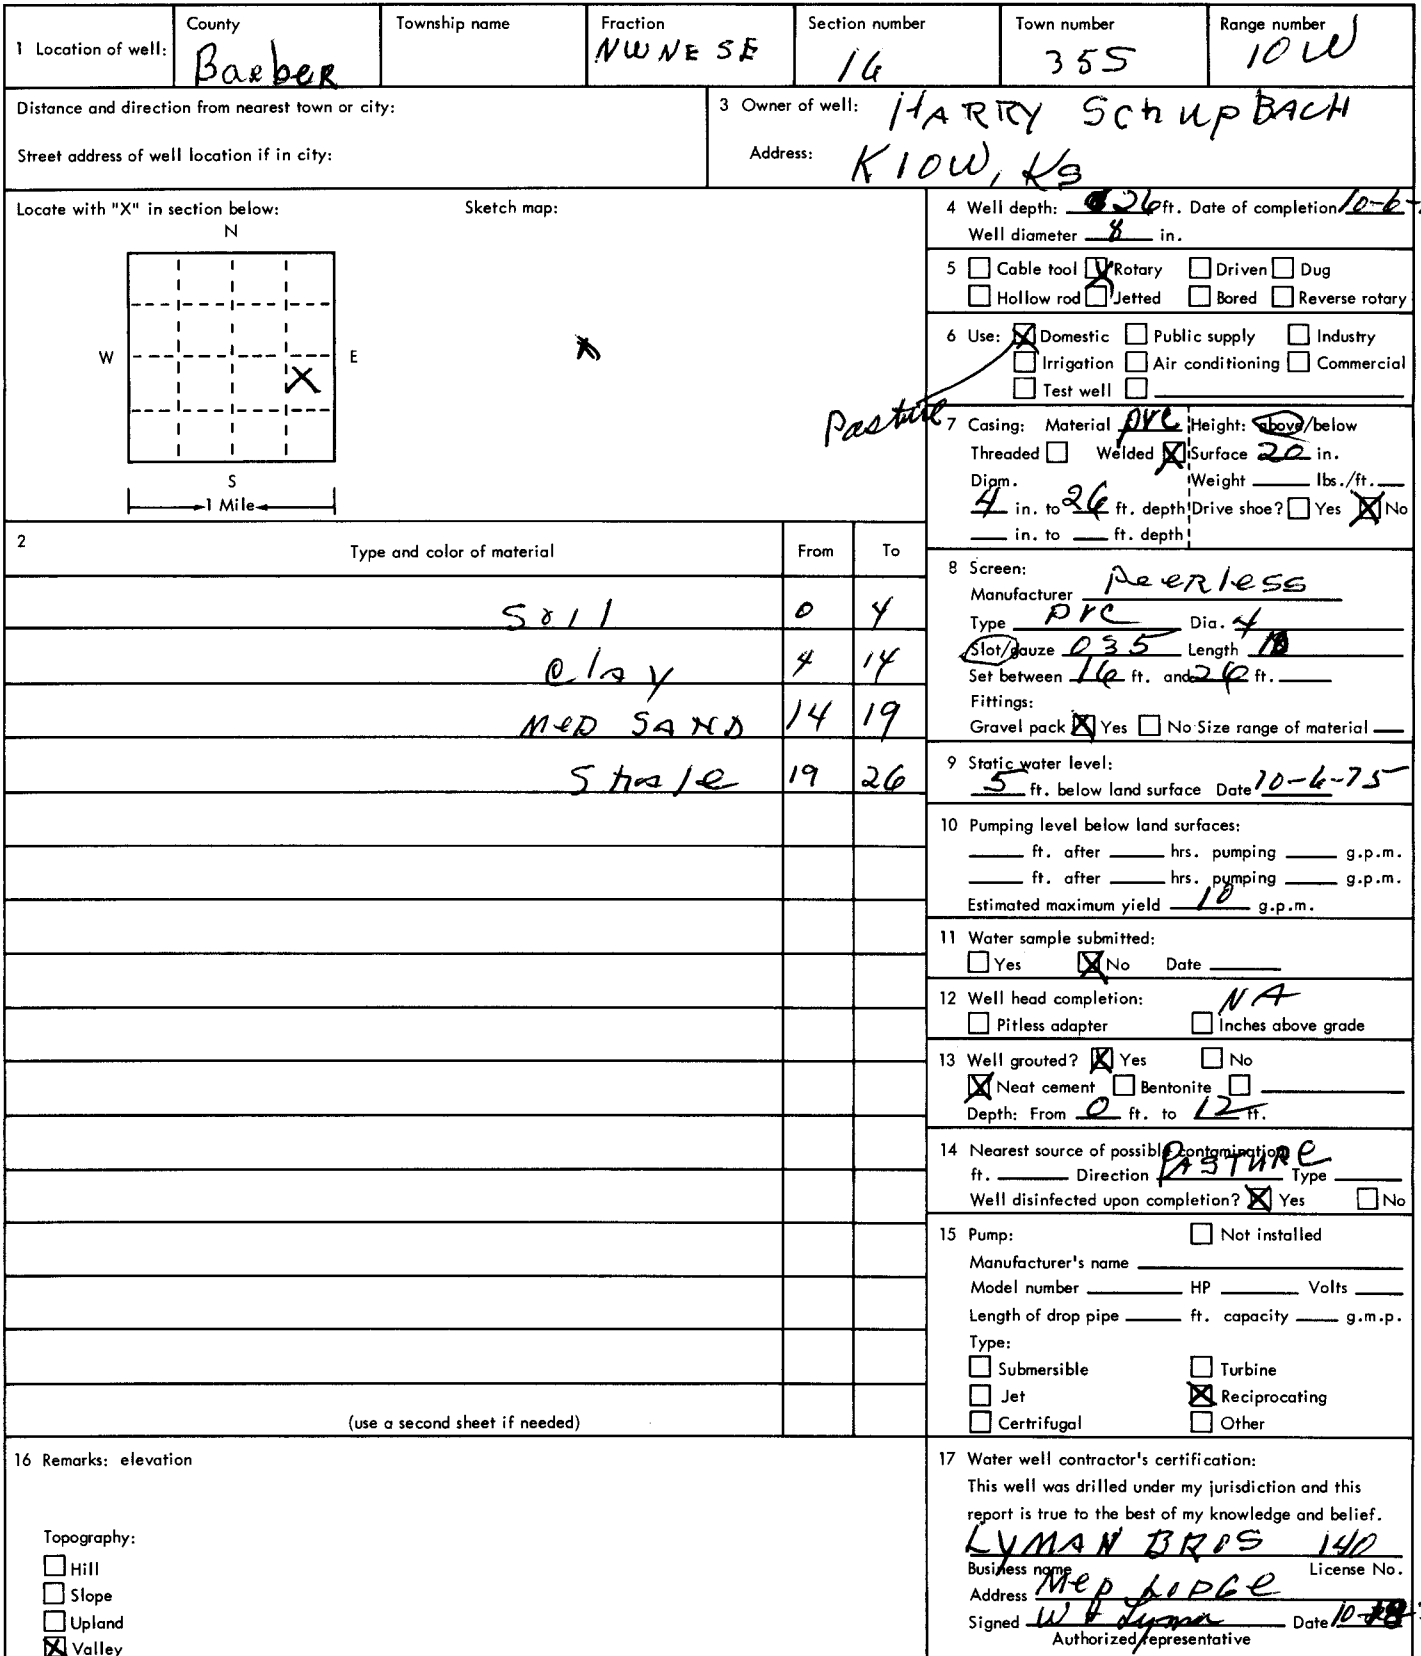 1 Location of well: County Barber Township name Fraction NW NE SE Section number 16 Town number 35S Range number 10W
Distance and direction from nearest town or city:
Street address of well location if in city:
3 Owner of well: HARRY SchupBACH
Address: KIOW, Ks
Locate with "X" in section below: Sketch map:
N
W E
X
S
1 Mile
4 Well depth: 26 ft. Date of completion 10-6-
Well diameter 8 in.
5 Cable tool X Rotary Driven Dug
Hollow rod Jetted Bored Reverse rotary
6 Use: X Domestic Public supply Industry
Irrigation Air conditioning Commercial
Test well
Pasture
7 Casing: Material pvc Height: above/below
Threaded Welded X Surface 20 in.
Diam. Weight lbs./ft.
4 in. to 26 ft. depth Drive shoe? Yes X No
in. to ft. depth
2 Type and color of material From To
Soil 0 4
Clay 4 14
MED SAND 14 19
Shale 19 26
(use a second sheet if needed)
8 Screen:
Manufacturer Peerless
Type pvc Dia. 4
Slot/gauze 035 Length 10
Set between 16 ft. and 26 ft.
Fittings:
Gravel pack X Yes No Size range of material
9 Static water level:
5 ft. below land surface Date 10-6-75
10 Pumping level below land surfaces:
ft. after hrs. pumping g.p.m.
ft. after hrs. pumping g.p.m.
Estimated maximum yield 10 g.p.m.
11 Water sample submitted:
Yes X No Date
12 Well head completion: NA
Pitless adapter Inches above grade
13 Well grouted? X Yes No
X Neat cement Bentonite
Depth: From 0 ft. to 12 ft.
14 Nearest source of possible contamination
ft. Direction PASTURE Type
Well disinfected upon completion? X Yes No
15 Pump: Not installed
Manufacturer's name
Model number HP Volts
Length of drop pipe ft. capacity g.m.p.
Type:
Submersible Turbine
Jet X Reciprocating
Certrifugal Other
16 Remarks: elevation
Topography:
Hill
Slope
Upland
X Valley
17 Water well contractor's certification:
This well was drilled under my jurisdiction and this
report is true to the best of my knowledge and belief.
LYMAN BROS 140
Business name License No.
Address Med Lodge
Signed W Lyman Date 10-
Authorized representative